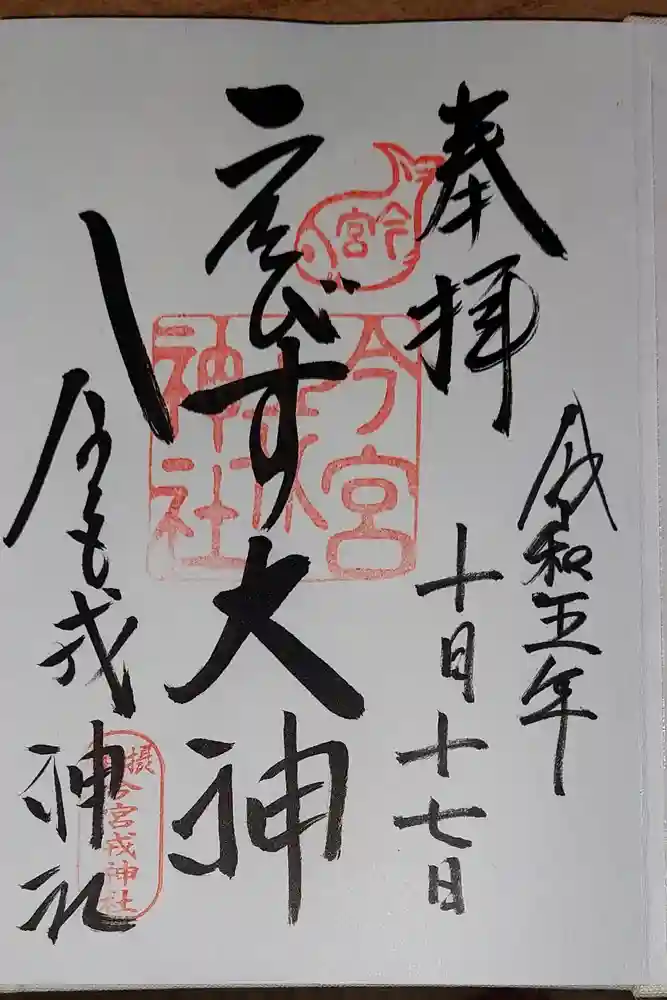 奉拝
令和五年
十月十七日
えびす大神
今宮戎神社
今宮
今宮
戎
神社
摂
今宮戎神社